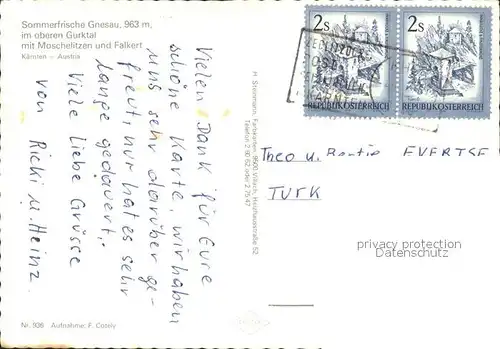 Sommerfrische Gnesau, 963 m,
im oberen Gurktal
mit Moschelitzen und Falkert
Kärnten – Austria
Vielen Dank für Eure
schöne Karte, wir haben
uns sehr darüber ge-
freut, nur hat es sehr
lange gedauert.
Viele liebe Grüsse
von Ricki u. Heinz
Nr. 936 Aufnahme: F.
H. Steinmann, Farbkarten, 9500 Villach,
Telefon 2 60 62 oder 2 75 47
2s
REPUBLIK ÖSTERREICH
2s
REPUBLIK ÖSTERREICH
Theo u. EVERTSE
TURK
privacy protection
Datenschutz